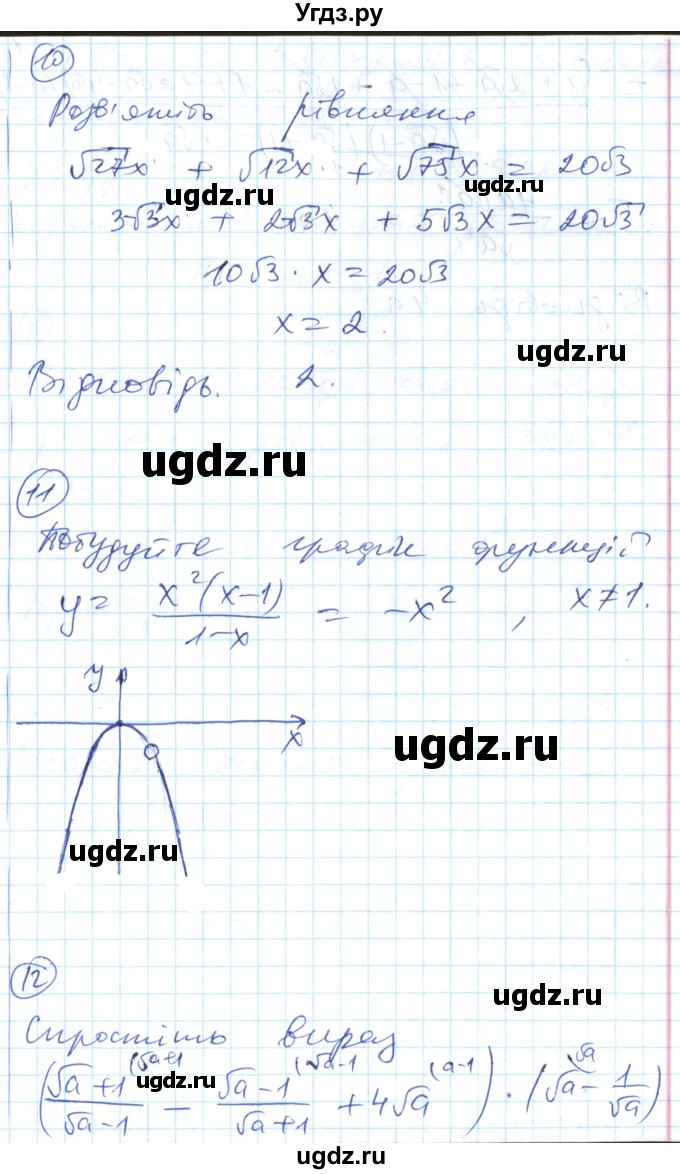 Угдз.ру
10
Розв'яжіть рівняння
√27x + √12x + √75x = 20√3
3√3x + 2√3x + 5√3x = 20√3
ugdz.ru
10√3 · x = 20√3
x = 2.
ugdz.ru
Відповідь. 2.
ugdz.ru
11
Побудуйте графік функції
y = x²(x-1)/(1-x) = -x², x≠1.
y
x
ugdz.ru
ugdz.ru
12
ugdz.ru
Спростіть вираз
((√a+1)/(√a-1) (√a+1 - (√a-1)/(√a+1) (√a-1 + 4√a (a-1) · (√a √a - 1/√a)
ugdz.ru
ugdz.ru